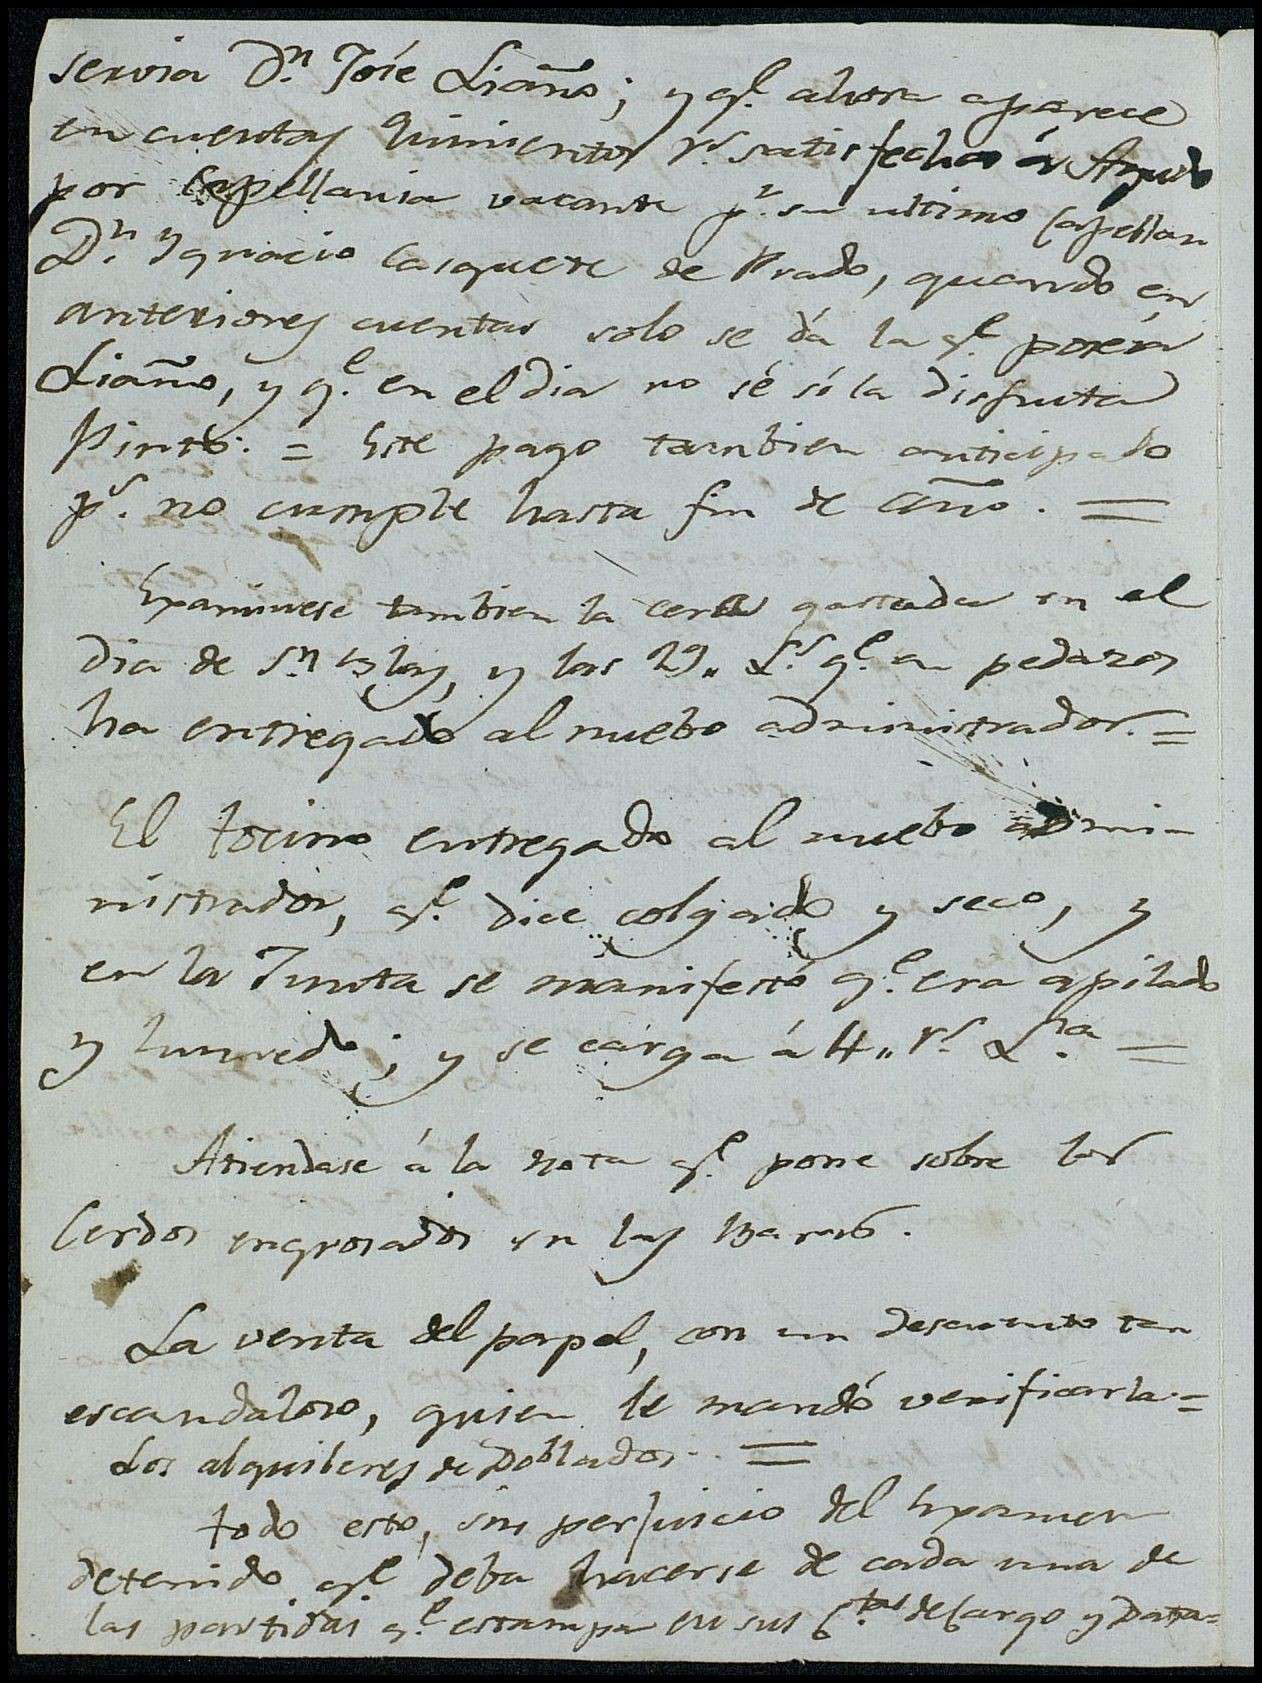 servia Dn. José Liaño; y qe. ahora aparece
en cuentas quinientos rs. satisfechos á Agudo
por Capellania vacante pr. su ultimo Capellan
Dn. Ygnacio Casquete de Prado, quando en
anteriores cuentas solo se dá la qe. poseía
Liaño, y qe. en el dia no sé sí la disfruta
Pinto. = Este pago tambien anticipado
ps. no cumple hasta fin de año. =
Examinese tambien la cera gastada en el
dia de Sn. Blas, y las 29,, Ls. qe. en pedazos
ha entregado al nuebo administrador. =
El tocino entregado al nuebo admi-
nistrador, qe. dice colgado y seco, y
en la Junta se manifestó qe. era apilado
y humedo; y se carga á 4,, rs. La. =
Atiendase á la nota qe. pone sobre los
Cerdos engrosados en las
La venta del papel, con un descuento tan
escandaloso, quien le mandó verificarla. =
Los alquileres de Doblados. =
todo esto, sin perjuicio del Examen
detenido qe. deba hacerse de cada una de
las partidas qe. estampa en sus Ctas. de Cargo y Data =